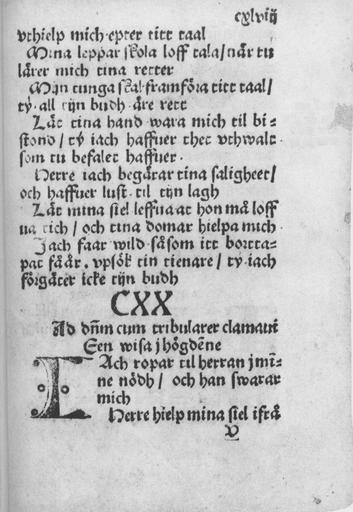 cxlviij
vthielp mich epter titt taal
Mina leppar skola loff tala/när tu
lärer mich tina retter
Mijn tunga skal framföra titt taal/
ty all tijn budh äre rett
Lät tina hand wara mich til bi-
stond / ty iach haffuer thet vthwalt
som tu befalet haffuer.
Herre iach begärar tina saligheet/
och haffuer lust til tijn lagh
Lät mina siel leffua at hon må loff
ua tich / och tina domar hielpa mich
Jach faar wild såsom itt bortta-
pat fåår. vpsök tin tienare / ty iach
förgäter icke tijn budh
CXX
Ad dn̄m cum tribularer clamaui
Een wisa j högdēne
IAch ropar til herran j mī-
ne nödh / och han swarar
mich
Herre hielp mina siel ifrå
V